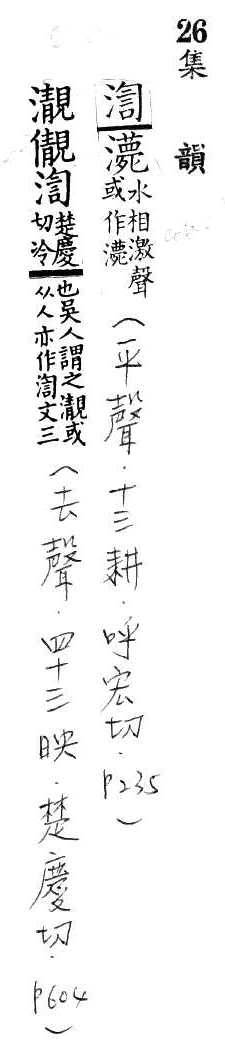 26集 韻
渹𤄫水相激聲或作𤄫（平聲．十三耕．呼宏切．P235）
瀙儭渹楚慶切冷也吴人謂之瀙或从人亦作渹文三（去聲．四十三映．楚慶切．P604）